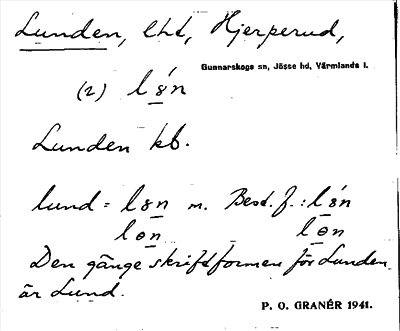 Lunden, lht, Hjerperud,
Gunnarskogs sn, Jösse hd, Värmlands l.
(2) lśn
Lunden kb.
lund = lsn m. Best. f.: lśn
lɵn lɵn
Den gänge skriftformen för Lunden
är Lund.
P. O. GRANÉR 1941.